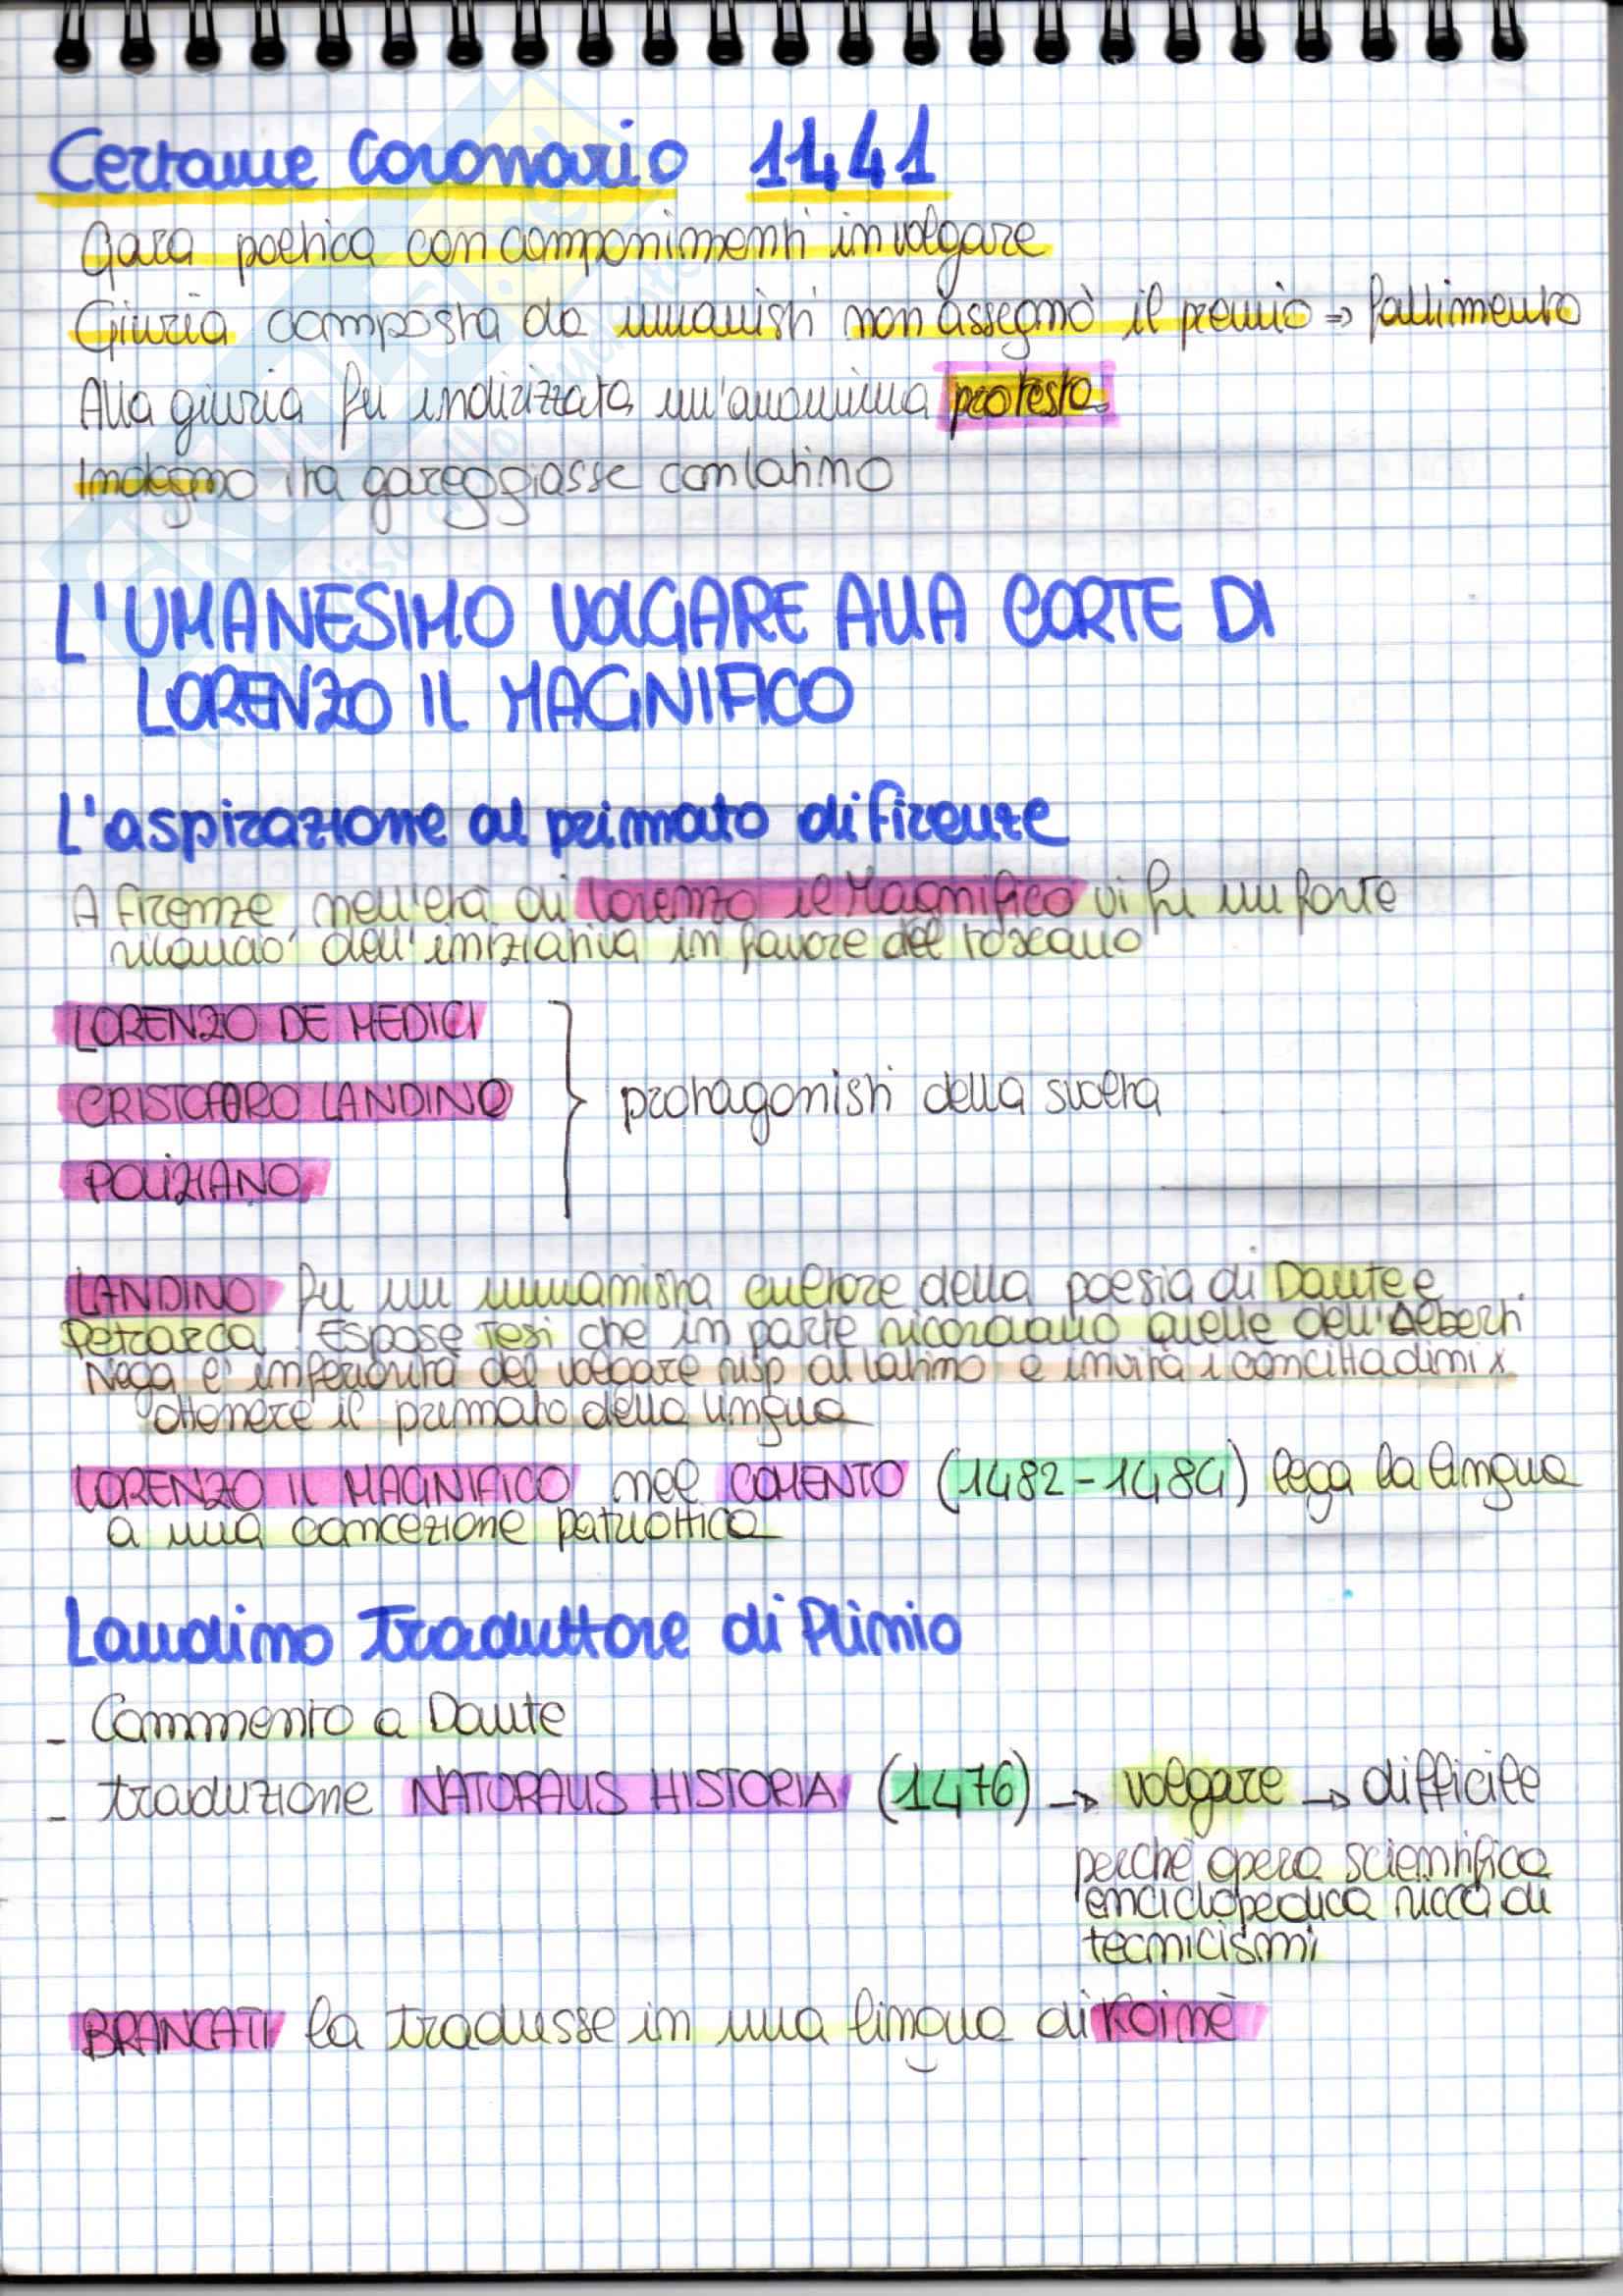 Certame Coronario 1441
Gara poetica con componimenti in volgare
Giuria composta da umanisti non assegnò il premio => fallimento
Alla giuria fu indirizzata un'anonima protesta
Indegno ita gareggiasse con latino
L'UMANESIMO VOLGARE ALLA CORTE DI
LORENZO IL MAGNIFICO
L'aspirazione al primato di Firenze
A Firenze nell'età di Lorenzo il Magnifico vi fu un forte
rilancio dell'iniziativa in favore del toscano
LORENZO DE MEDICI
CRISTOFORO LANDINO
protagonisti della svolta
POLIZIANO
LANDINO fu un umanista cultore della poesia di Dante e
Petrarca. Espose tesi che in parte ricordano quelle dell'Alberti.
Nega l'inferiorità del volgare risp al latino e invita i concittadini x
ottenere il primato della lingua
LORENZO IL MAGNIFICO nel COMENTO (1482-1484) lega la lingua
a una concezione patriottica
Landino traduttore di Plinio
- Commento a Dante
- traduzione NATURALIS HISTORIA (1476) → volgare → difficile
perchè opera scientifica
enciclopedica ricca di
tecnicismi
BRANCATI la tradusse in una lingua di Koinè